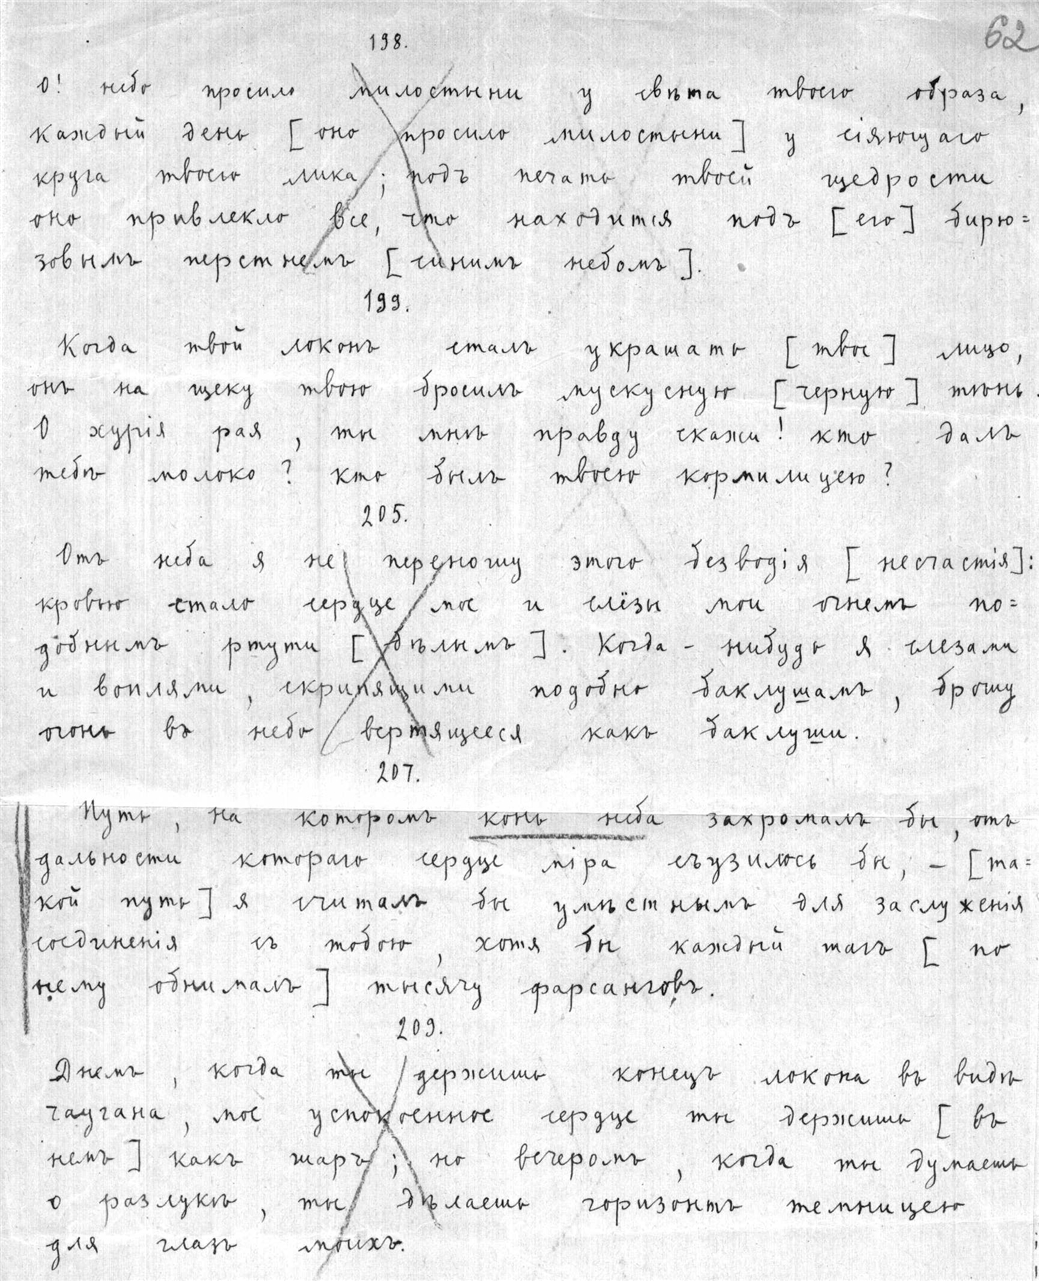 62
198.
О! небо просило милостыни у свѣта твоего образа,
каждый день [оно просило милостыни] у сіяющаго
круга твоего лика; подъ печать твоей щедрости
оно привлекло все, что находится подъ [его] бирю=
зовымъ перстнемъ [синимъ небомъ].
199.
Когда твой локонъ сталъ украшать [твое] лицо,
онъ на щеку твою бросилъ мускусную [черную] тѣнь.
О хурія рая, ты мнѣ правду скажи! кто далъ
тебѣ молоко? кто былъ твоею кормилицею?
205.
Отъ неба я не переношу этого безводія [несчастія]:
кровью стало сердце мое и слёзы мои огнемъ по=
добнымъ ртути [бѣлымъ]. Когда-нибудь я слезами
и воплями, скрипящими подобно баклушамъ, брошу
огонь въ небо вертящееся какъ баклуши.
207.
Путь, на которомъ конь неба захромалъ бы, отъ
дальности котораго сердце міра съузилось бы, – [та=
кой путь] я считалъ бы умѣстнымъ для заслуженія
соединенія съ тобою, хотя бы каждый шагъ [по
нему обнималъ] тысячу фарсанговъ.
209.
Днемъ, когда ты держишь конецъ локона въ видѣ
чаугана, мое успокоенное сердце ты держишь [въ
немъ] какъ шаръ; но вечеромъ, когда ты думаешь
о разлукѣ, ты дѣлаешь горизонтъ темницею
для глазъ моихъ.